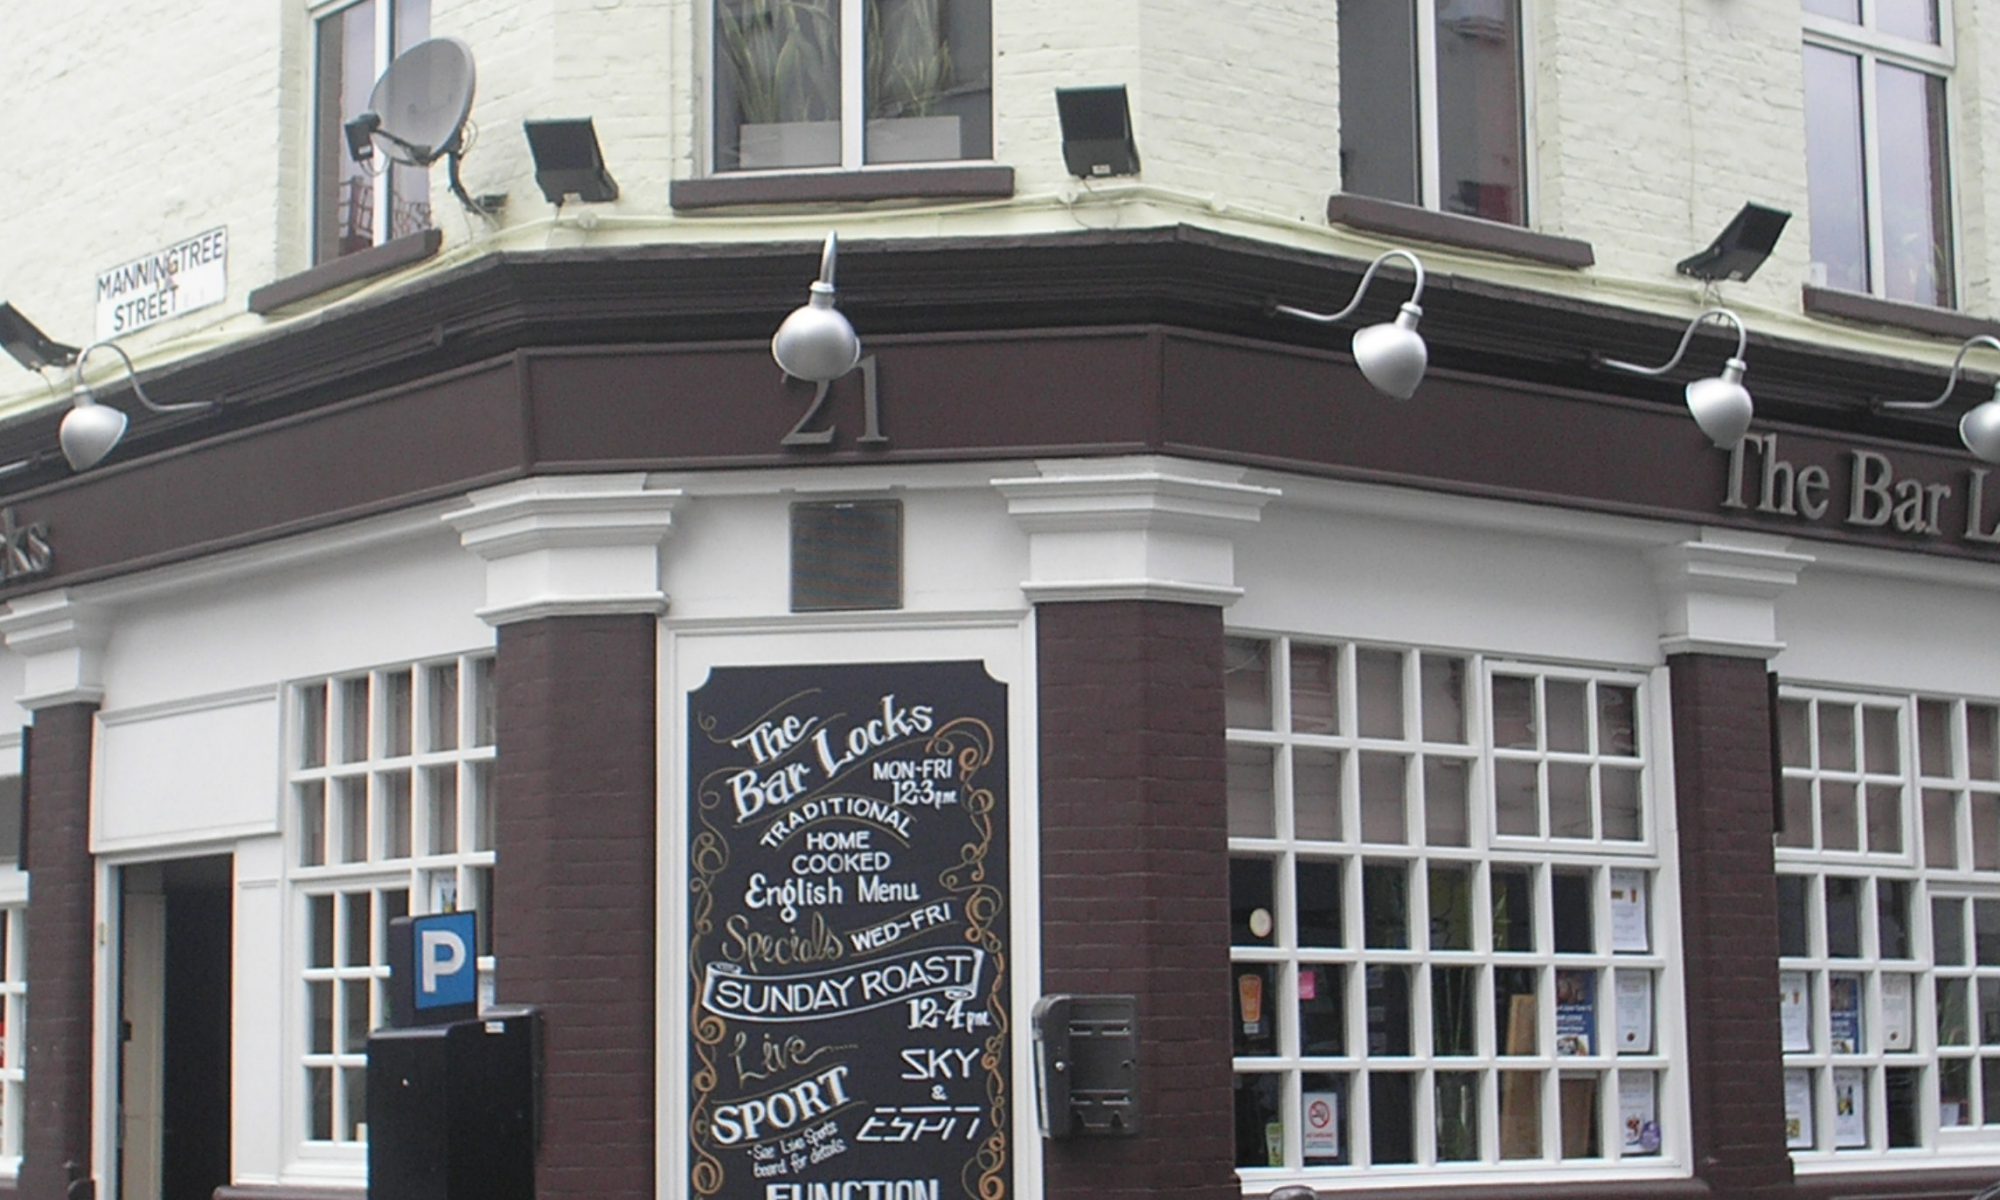 MANNINGTREE
STREET
21
The Bar L
cks
The
Bar Locks
MON-FRI
12-3pm
TRADITIONAL
HOME
COOKED
English Menu
Specials WED-FRI
SUNDAY ROAST
12-4pm
Live
SPORT
SKY
&
ESPN
- See Live Sports
board for details.
FUNCTION
P